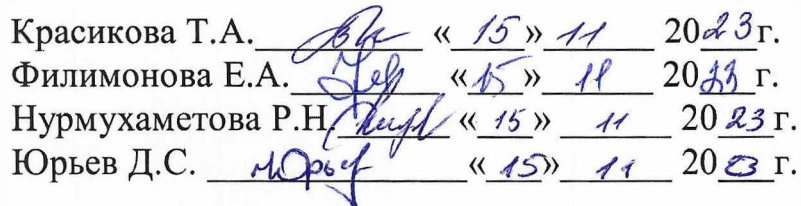 Красикова Т.А. «15» 11 2023г.
Филимонова Е.А. «15» 11 2023г.
Нурмухаметова Р.Н. «15» 11 2023г.
Юрьев Д.С. Юрьев «15» 11 2023г.